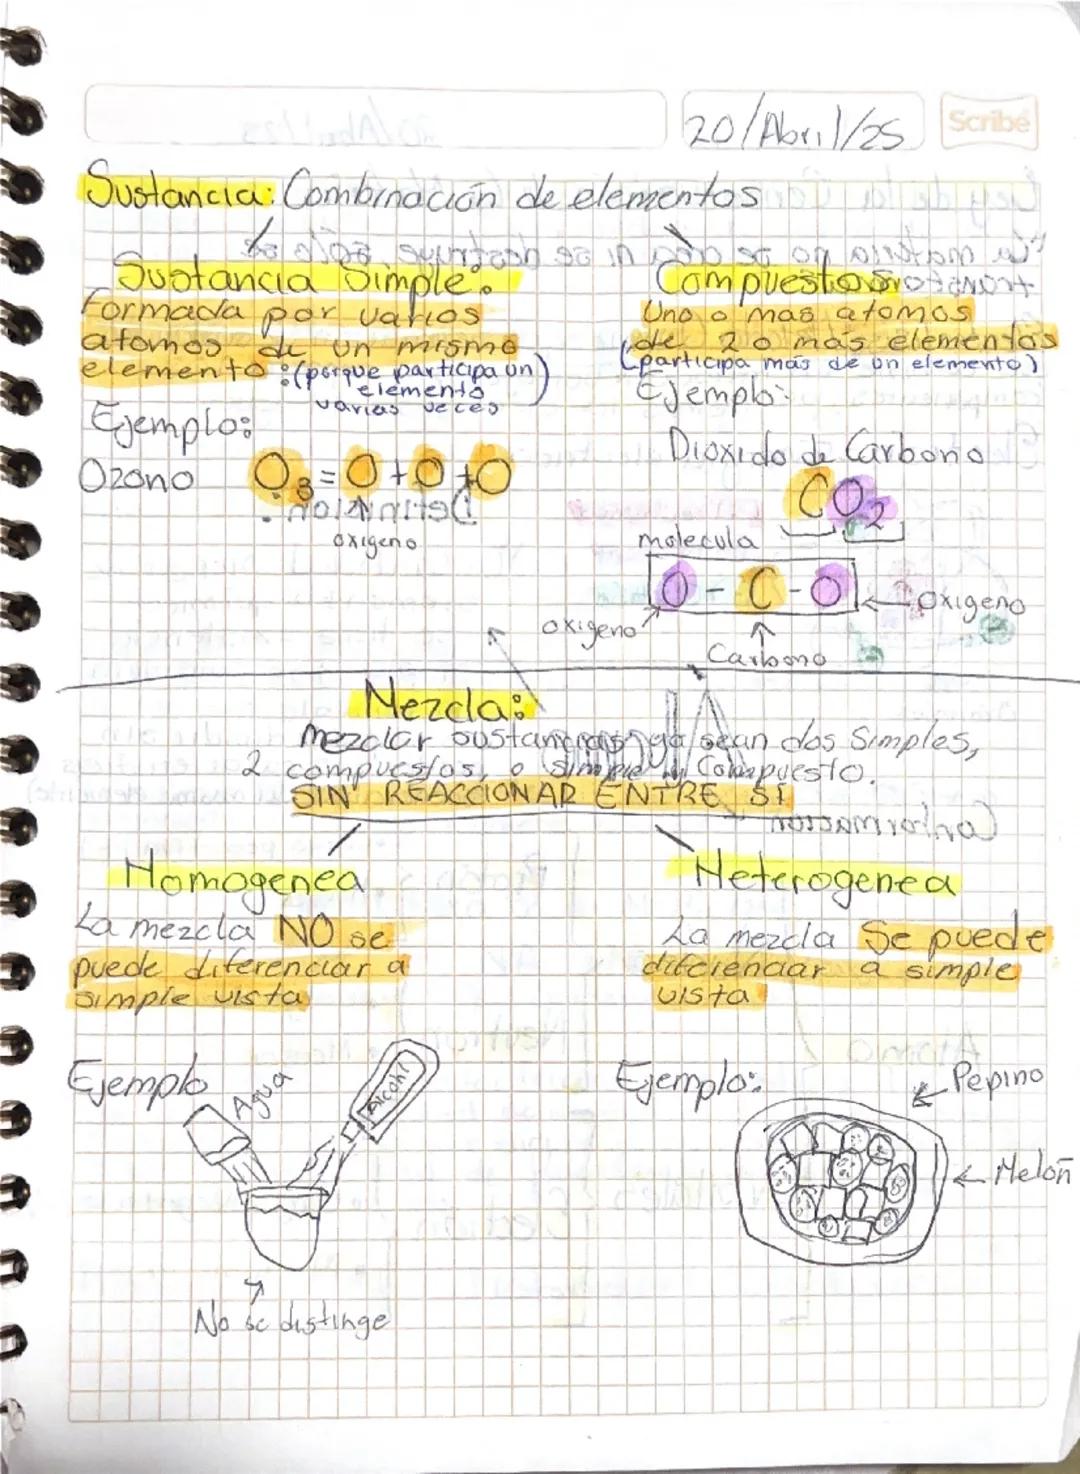 20/Abril/25
Scribe
Sustancia: Combinación de elementos
Sustancia Simple:
Formada por varios
atomos de un mismo
elemento :(porque participa un
elemento
varias veces)
Ejemplo:
Ozono O3 = O + O + O
oxigeno
Compuesto
Uno o mas atomos
de 2 o más elementos
(participa más de un elemento)
Ejemplo:
Dioxido de Carbono
CO2
molecula
O - C - O
oxigeno
Carbono
oxigeno
Mezcla:
mezclar sustancias ya sean dos Simples,
2 compuestos, o simple y Compuesto.
SIN REACCIONAR ENTRE SI
Homogenea
La mezcla NO se
puede diferenciar a
simple vista
Ejemplo
Agua
Alcohl
No se distinge
Heterogenea
La mezcla Se puede
diferenciar a simple
vista
Ejemplo:
Pepino
Melón